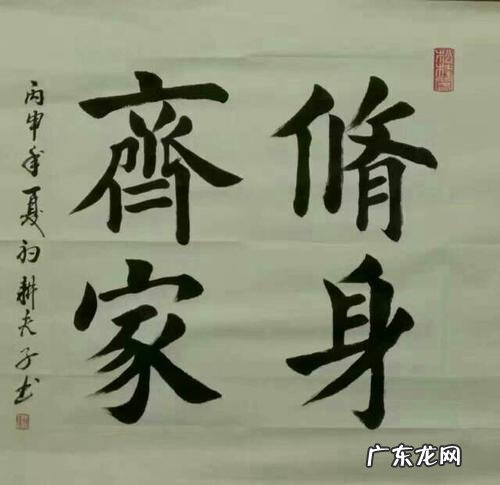 脩身
齊家
丙申年夏初耕夫子书
广东龙网